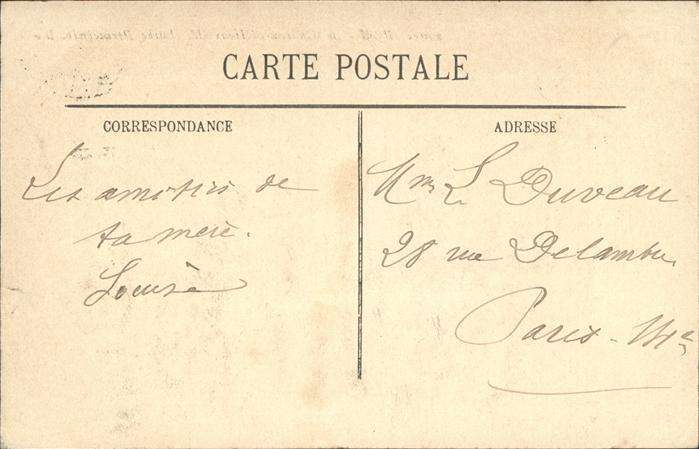 CARTE POSTALE
CORRESPONDANCE
Les amitiés de
ta mère.
Louise
ADRESSE
Mme L. Duveau
28 rue Delambre
Paris - 14e